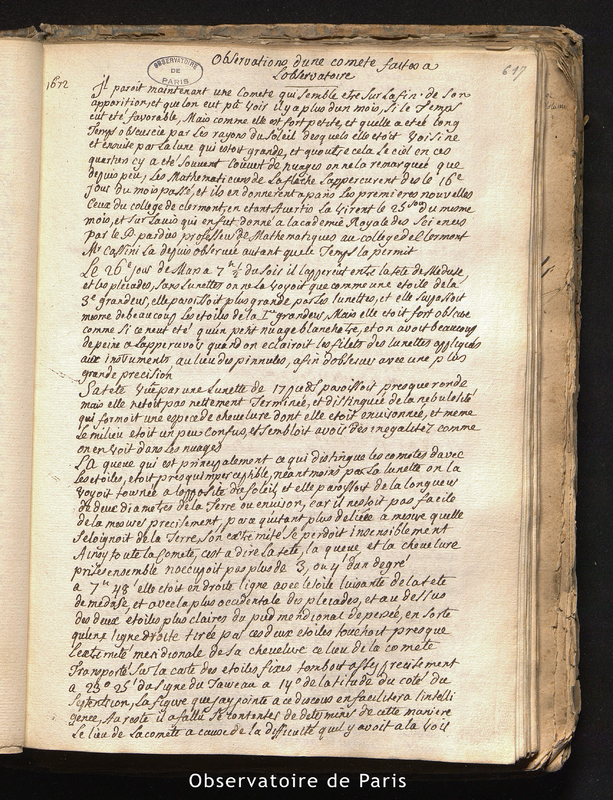 Observations dune comete faittes a
Lobservatoire
617
OBSERVATOIRE
DE
PARIS
1672
Il paroit maintenant une Comete qui semble estre sur la fin de son
apparition, et que lon eut pû voir il y a plus dun mois, si le Temps
eut eté favorable, Mais comme elle est fort petite, et quelle a eté long
Temps obscurcie par Les rayons du soleil desquels elle etoit voisine
et ensuite par La lune qui estoit grande, et quoutre cela Le ciel en ces
quartiers cy a eté souvent couvert de nuages on ne la remarquée que
depuis peu; Les Mathematiciens de La fleche Lappercurent des le 16e
jour du mois passé, et ils en donnerent a paris Les premieres nouvelles
Ceux du college de clermont, en etant avertis La virent le 25 du mesme
mois, et sur Lavis qui en fut donné a lacademie Royale des Sciences
par le P. pardies professeur de Mathematiques au college de Clermont
Mr Cassini La depuis observée autant que le Temps la permit
Le 26e jour de Mars a 7h ½ du soir il lapperceut entre la tete de Meduse
et les pleiades, sans lunettes on ne La voyoit que comme une etoile de la
3e grandeur, elle paroissoit plus grande par Les lunettes, et elle surpassoit
mesme de beaucoup Les etoiles de la 1re grandeur, Mais elle etoit fort obscure
comme si ce neut eté quun petit nuage blanchatre, et on avoit beaucoup
de peine a Lappercevoir quand on eclairoit les filets des lunettes appliquées
aux instruments au lieu des pinnules, afin dobserver avec une plus
grande precision
Sa tete vüe par une Lunette de 17 pieds paroissoit presque ronde
mais elle netoit pas nettement Terminée, et distinguée de la nebulosité
qui formoit une espece de chevelure dont elle etoit environnée, et meme
Le milieu etoit un peu confus, et sembloit avoir des inegalitez comme
on en voit dans Les nuages
La queue qui est principalement ce qui distingue les cometes davec
Les etoiles, etoit presqu imperceptible, neantmoins par La lunette on la
voyoit tournée a lopposite du soleil, et elle paroissoit de la longueur
de deux diametres de la Terre ou environ, car il nestoit pas facile
de la mesurer precisement, parce quetant plus deliée a mesure quelle
seloignoit de la Terre, son extremité se perdoit insensiblement
Ainsy toute la Comete, cest a dire la tete, la queue et la chevelure
prise ensemble noccupoit pas plus de 3, ou 4 dun degré
a 7h 48' elle etoit en droite ligne avec letoile luisante de la tete
de meduse, et avec la plus occidentale des pleiades, et au dessus
des deux etoiles plus claires du pied meridional de persée, en sorte
quune ligne droite tirée par ces deux etoiles touchoit presque
Lextremité meridionale de sa chevelure ce lieu de la comete
Transporté sur la carte des etoiles fixes tomboit assez precisement
a 23° 25' du signe du Taureau a 14° de latitude du coté du
septentrion, La figure que jay pointe a ce discours en facilitera lintelli
gence, Au reste il a fallu se contenter de determiner de cette maniere
Le lieu de La comete a cause de la difficulté quil y avoit a la voir
Observatoire de Paris